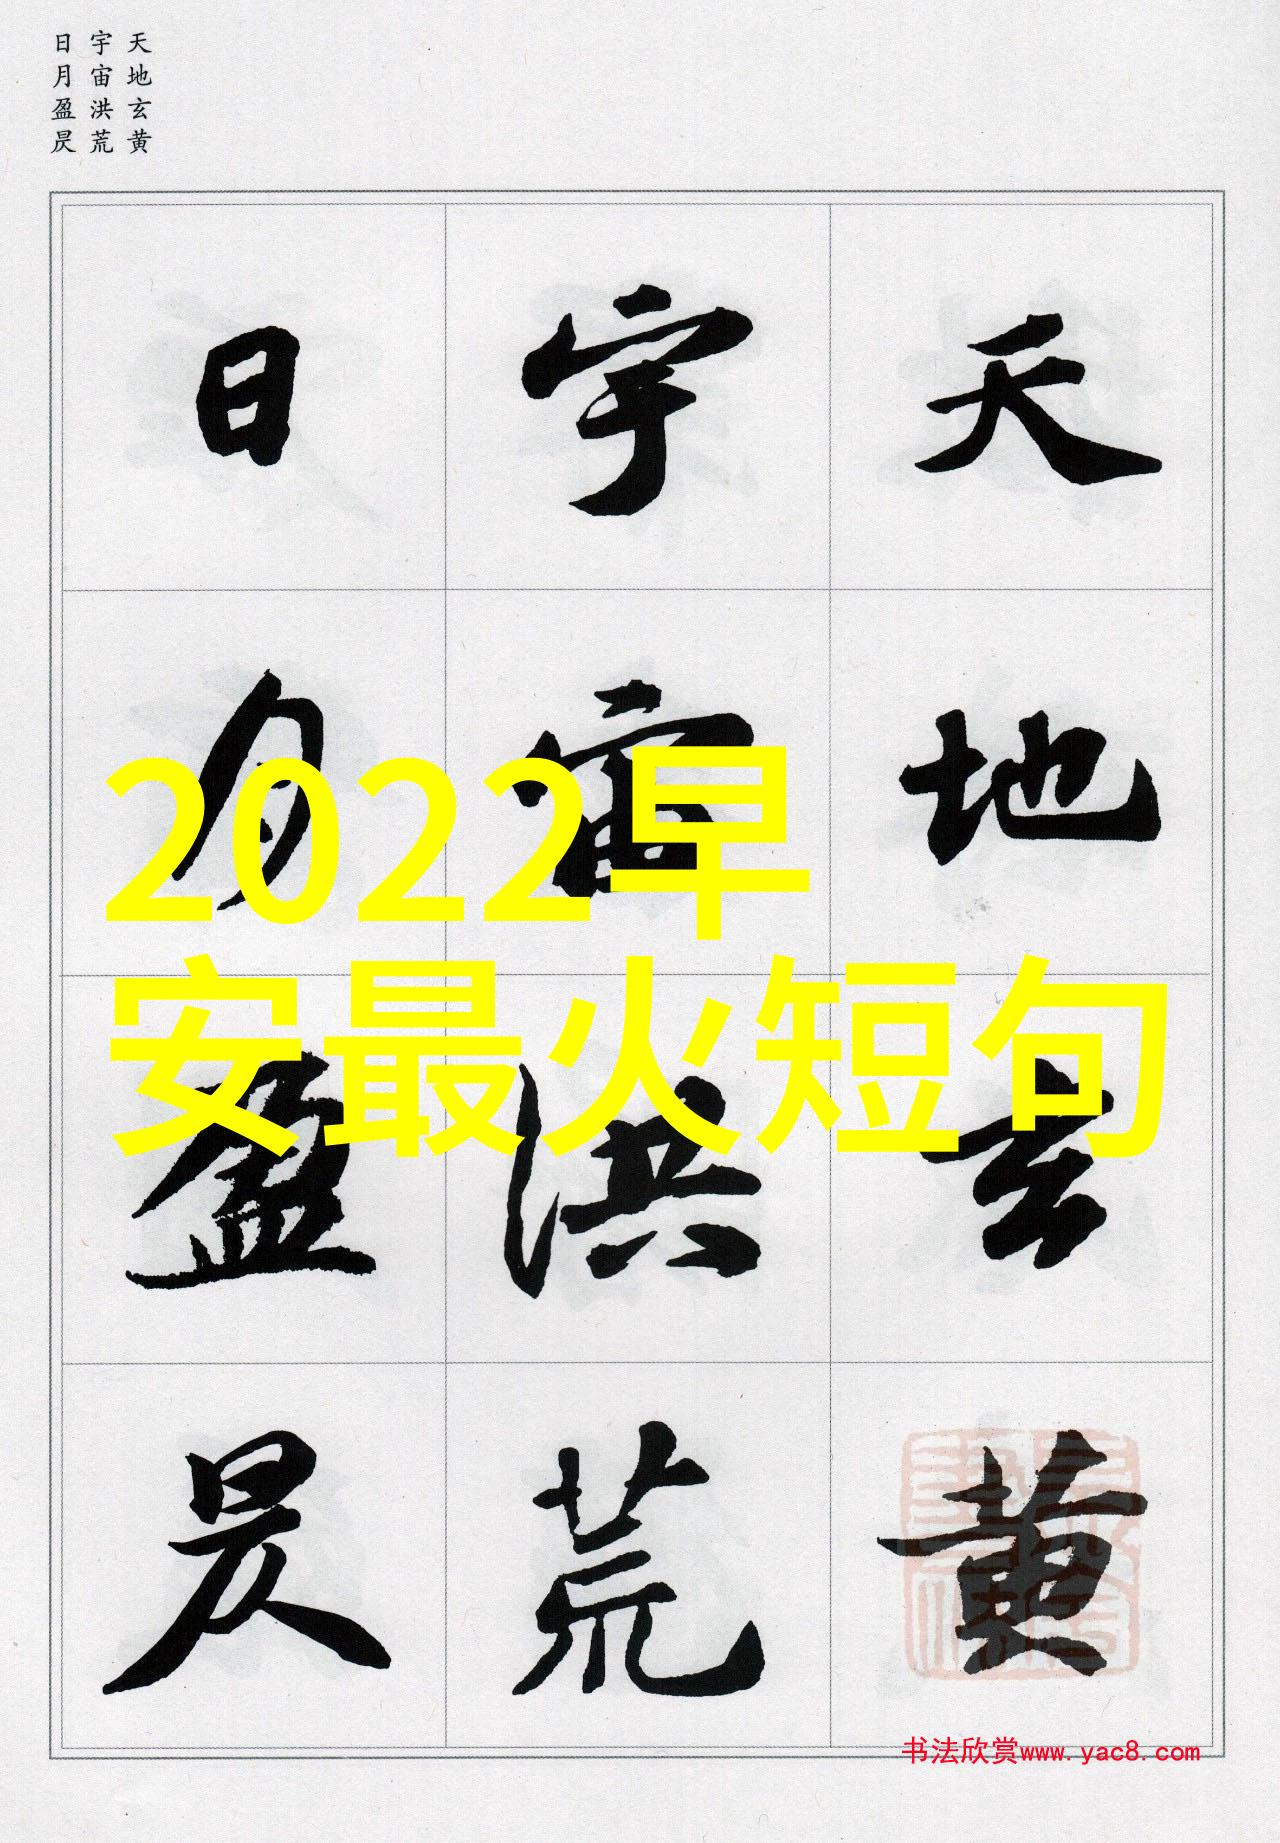 天地玄黄
宇宙洪荒
日月盈昃
天地玄黄
宇宙洪荒
日月盈昃
2022早
安最火短句
书法欣赏www.yac8.com